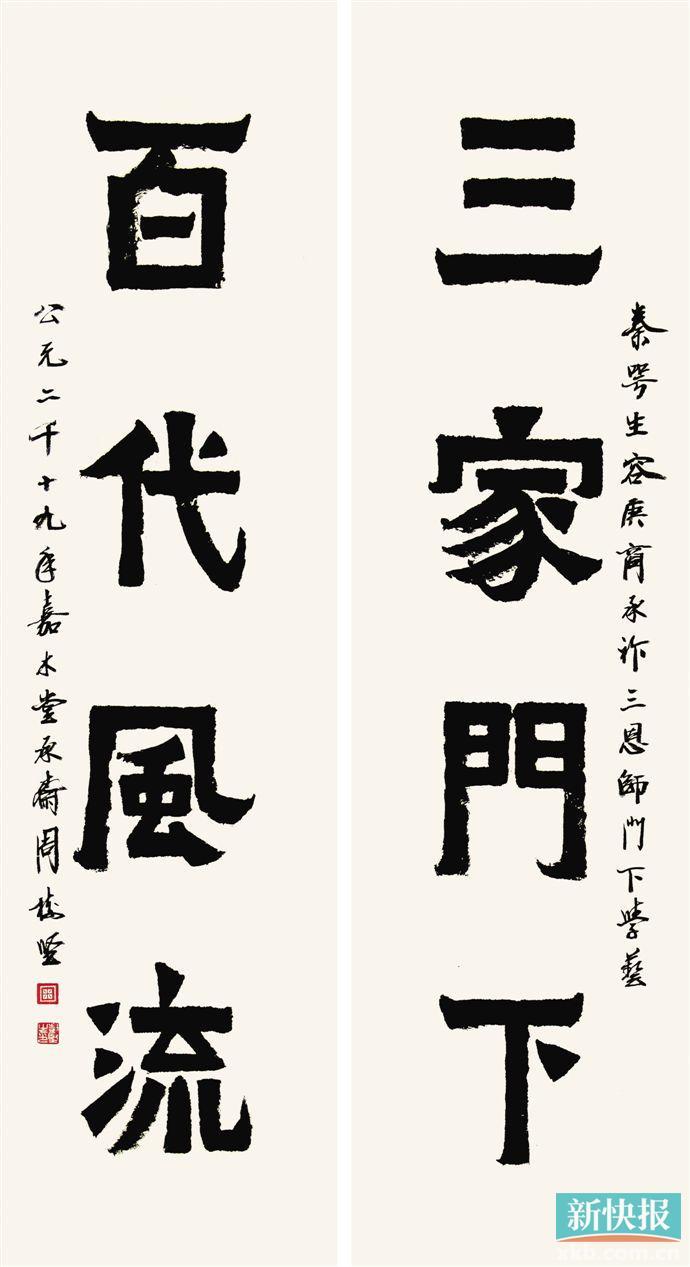 三家門下
秦咢生容庚商承祚三恩師門下學藝
百代風流
公元二千十九年嘉木堂承燾周樹堅
新快报
xkb.com.cn